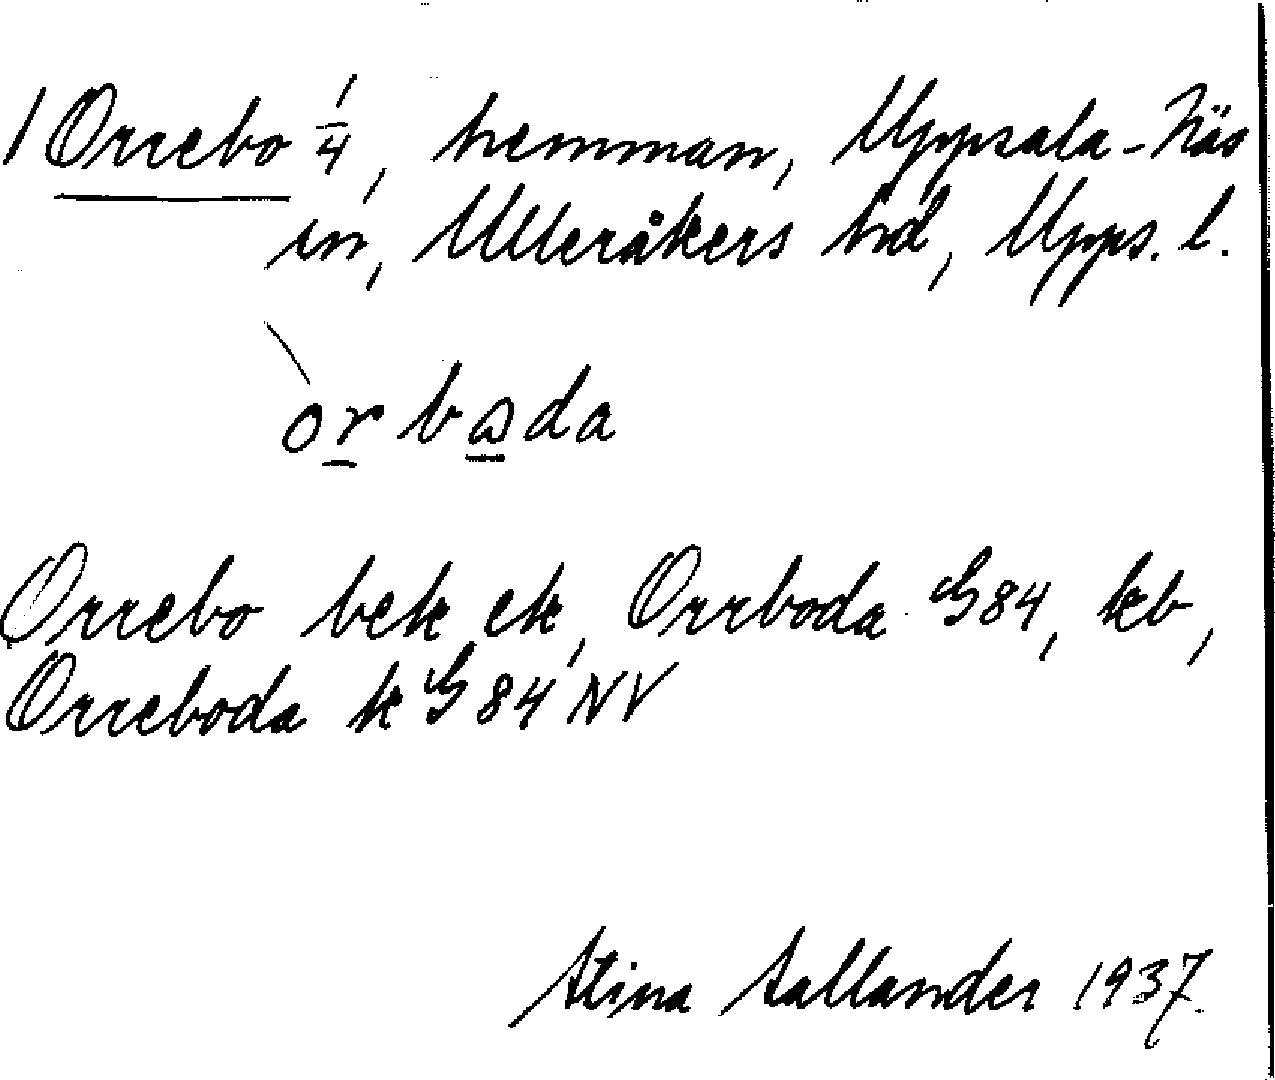 1 Orrebo 1/4, hemman, Uppsala-Näs
sn, Ulleråkers hd, Upps. l.
orboda
Orrebo bek ek, Orrboda G84, kb,
Orreboda k G 84 NV
Stina Sallander 1937.